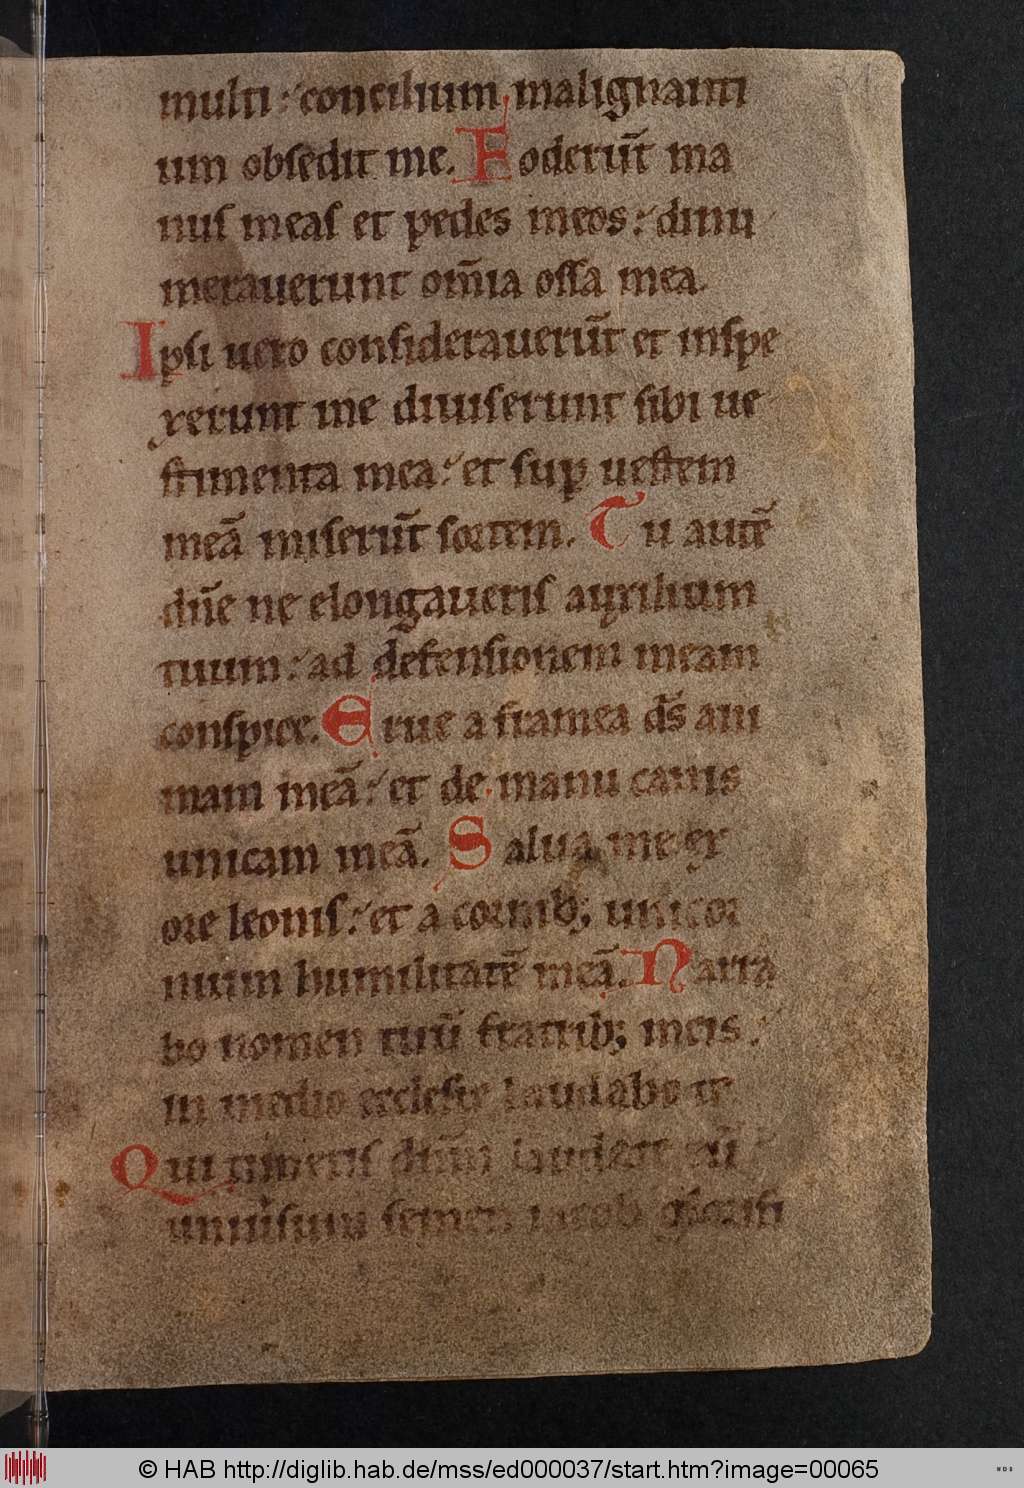 multi: concilium malignanti
um obsedit me. Foderūt ma
nus meas et pedes meos: dinu
merauerunt om̄ia ossa mea.
Ipsi uero considerauerūt et inspe
xerunt me diuiserunt sibi ue
stimenta mea: et sup uestem
meā miserūt sortem. Tu autē
dn̄e ne elongaueris auxilium
tuum: ad defensionem meam
conspice. Erue a framea ds̄ ani
mam meā: et de manu canis
unicam meā. Salua me ex
ore leonis: et a cornib; unicor
nium humilitatē meā. Narra
bo nomen tuū fratrib; meis:
in medio ecclesie laudabo te
Qui timetis dn̄m laudate eū
uniu͛sum semen iacob glorifi
© HAB http://diglib.hab.de/mss/ed000037/start.htm?image=00065